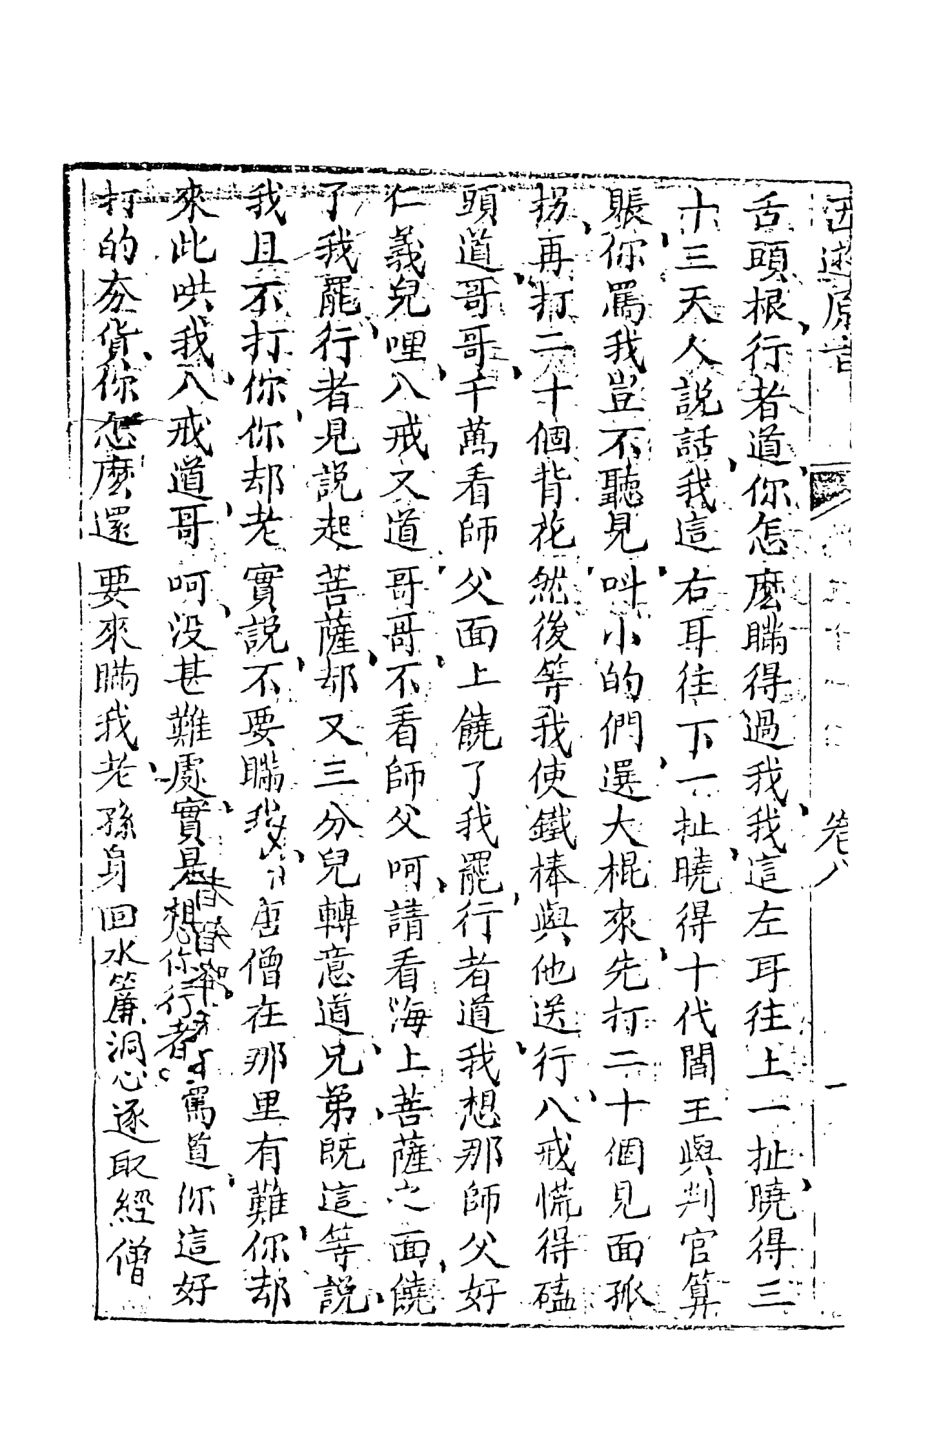 西遊原旨 卷八
舌頭根行者道你怎麽瞞得過我我這左耳往上一扯曉得三
十三天人説話我這右耳往下一扯曉得十代閻王與判官算
賬你罵我豈不聽見叫小的們選大棍來先打二十個見面孤
拐再打二十個背花然後等我使鐵棒與他送行八戒慌得磕
頭道哥哥千萬看師父面上饒了我罷行者道我想那師父好
仁義兒哩八戒又道哥哥不看師父呵請看海上菩薩之面饒
了我罷行者見説起菩薩却又三分兒轉意道兄弟既這等説
我且不打你你却老實説不要瞞我 唐僧在那里有難你却
來此哄我八戒道哥呵没甚難處實是想你行者罵道你這好
打的夯貨你怎麽還要來瞞我老孫身回水簾洞心逐取經僧